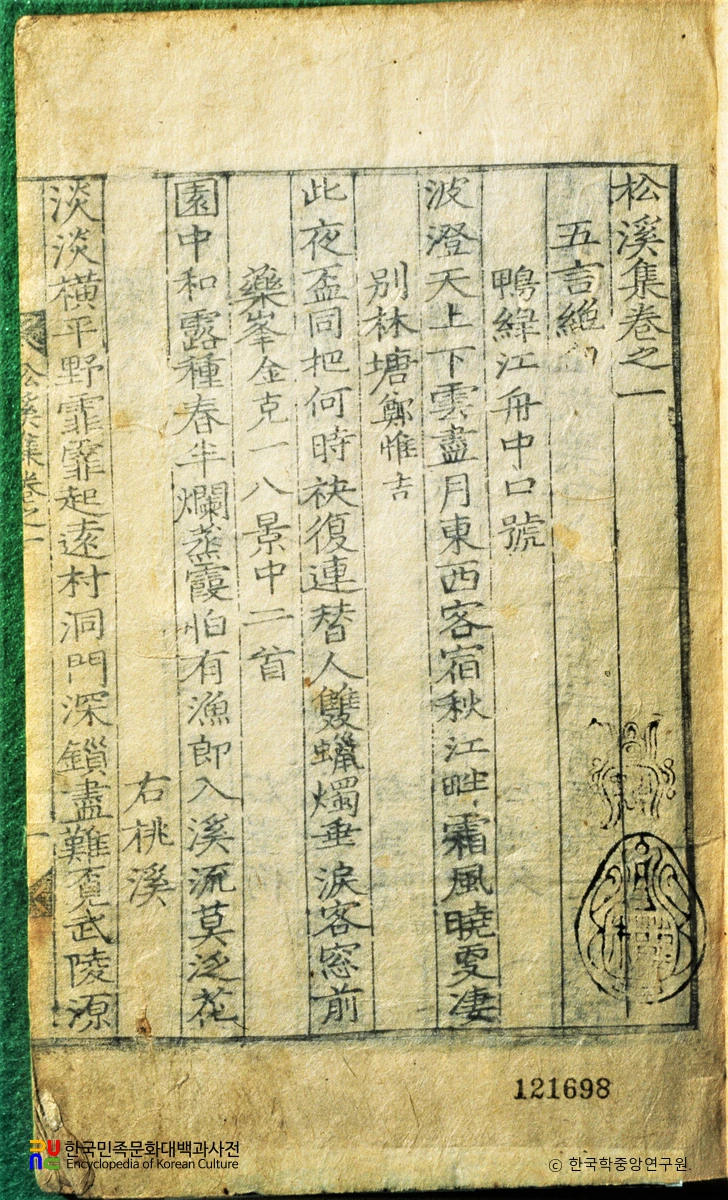 松溪集卷之一
五言絶
鴨綠江舟中口號
波澄天上下雲盡月東西客宿秋江畔霜風曉更凄
別林塘鄭惟吉
此夜盃同把何時袂復連替人雙蠟燭垂淚客窓前
藥峯金克一八景中二首
園中和露種春半爛蒸霞怕有漁郎入溪流莫泛花
右桃溪
淡淡橫平野霏霏起遠村洞門深鎖盡難覓武陵源
松溪集卷之一
一
121698
한국민족문화대백과사전
Encyclopedia of Korean Culture
ⓒ 한국학중앙연구원